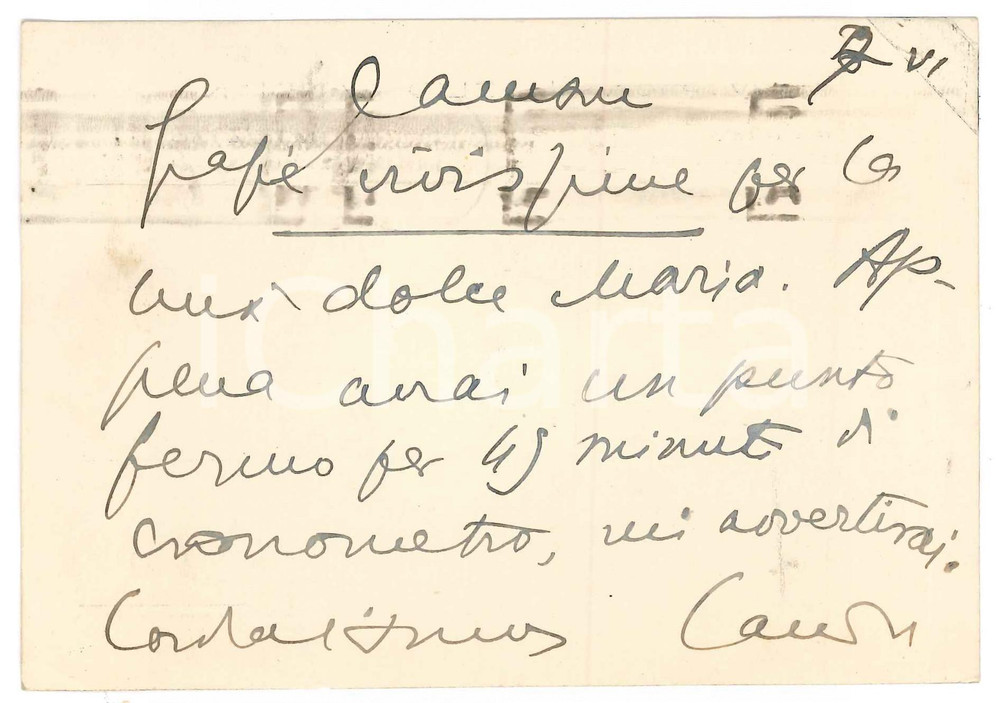 7 VI
Grazie vivissime per la
mia dolce Maria. Ap-
pena avrai un punto
fermo per 45 minuti di
cronometro, mi avvertirai.
Cordialissimo
iCharta